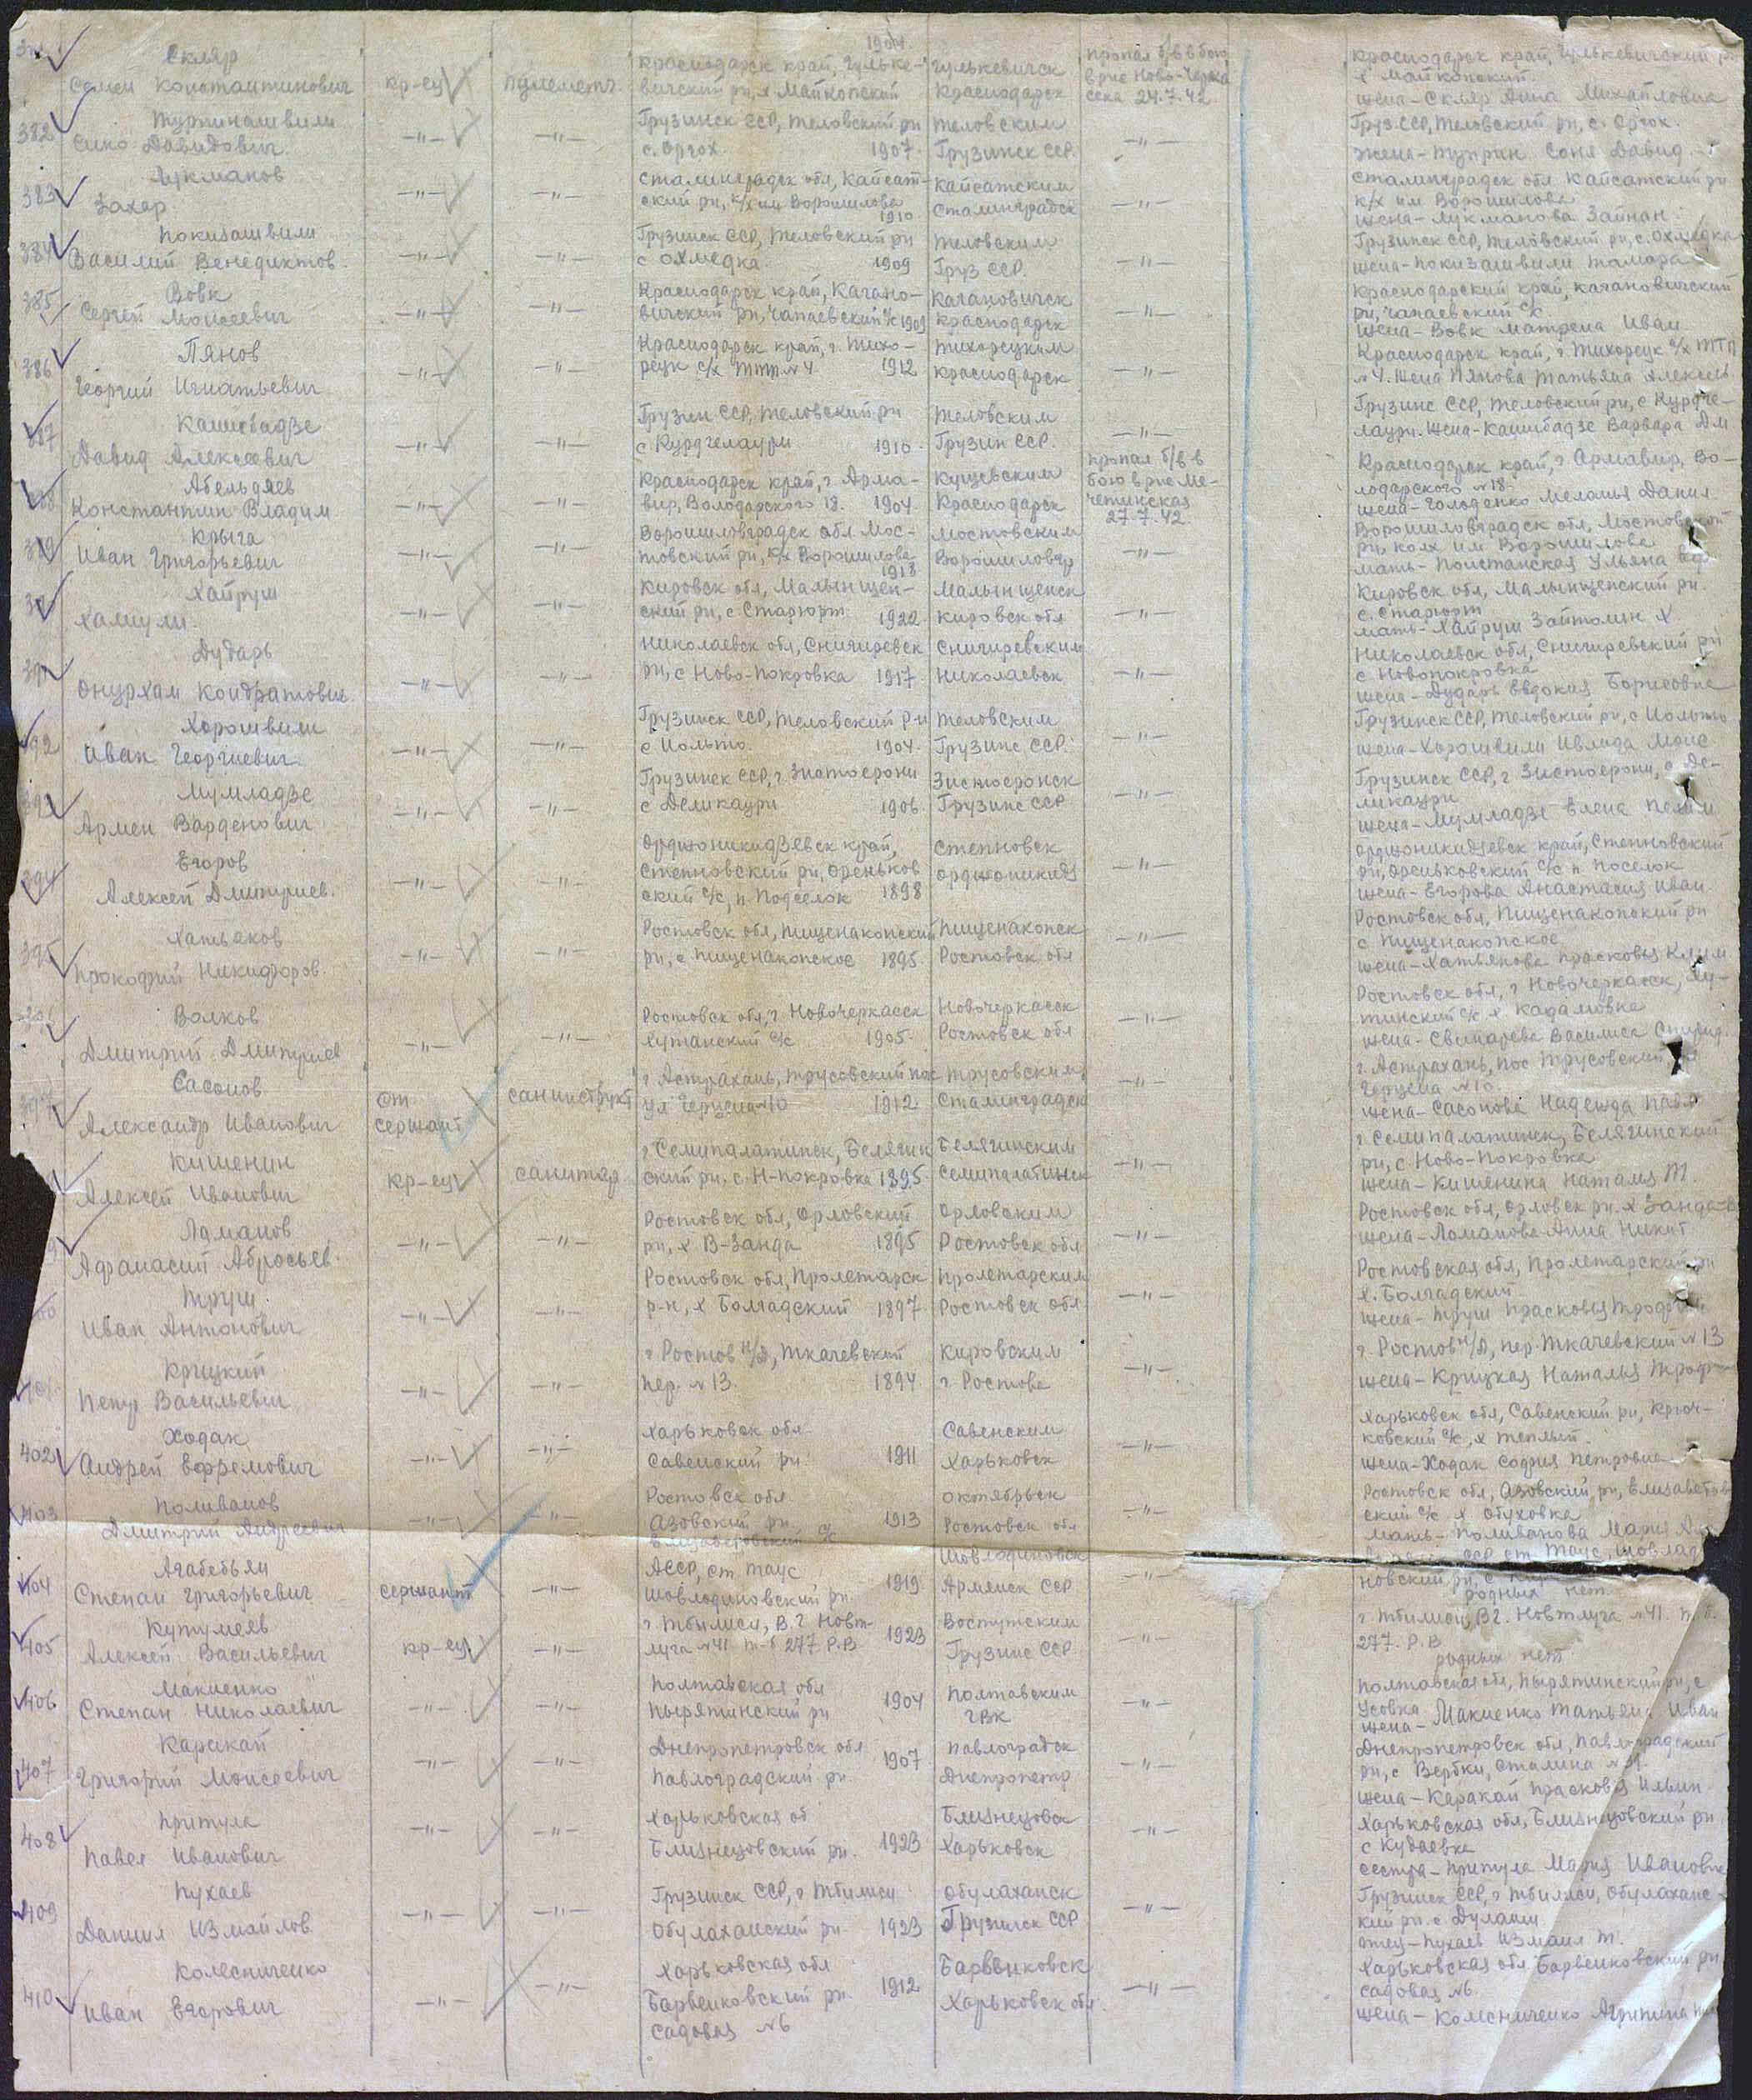 Скляр
Семен Константинович
кр-ец
пулеметч.
1904
Краснодарск край, Гульке-
вичский рн, х Майкопский
Гулькевичск
Краснодарск
пропал б/в в бою
в рне Ново-Черка
сска 24.7.42.
Краснодарск край, Гулькевичский рн
х Майкопский.
жена - Скляр Анна Михайловна
382
Турпиналивили
Сико Давидович.
-"-
-"-
Грузинск ССР, Теловский рн
с. Оргох. 1907.
Теловским
Грузинск ССР.
-"-
Груз. ССР, Теловский рн, с. Оргох.
жена - Соня Давид
383
Лукманов
Захар
-"-
-"-
Сталинградск обл, Кайсат-
ский рн, к/х им Ворошилова
1910.
Кайсатским
Сталинградск
-"-
Сталинградск обл Кайсатский рн
к/х им Ворошилова
жена - Лукманова Зайнан.
384
Покизашвили
Василий Венедиктов.
-"-
-"-
Грузинск ССР, Теловский рн
с Охмедка 1909
Теловским
Груз ССР.
-"-
Грузинск ССР, Теловский рн, с. Охмедка
жена - Покизашвили Тамара
385
Вовк
Сергей Моисеевич
-"-
-"-
Краснодарск край, Кагано-
вичский рн, Чапаевский с/с 1909
Кагановичск
Краснодарск
-"-
Краснодарский край, Кагановичский
рн, Чапаевский с/с
жена - Вовк Матрена Иван
386
Пянов
Георгий Игнатьевич
-"-
-"-
Краснодарск край, г. Тихо-
рецк с/х ТТП №4 1912
Тихорецким
Краснодарск
-"-
Краснодарск край, г. Тихорецк с/х ТТП
№4. жена Пянова Татьяна Алексеев.
387
Камсвадзе
Давид Алексеевич
-"-
-"-
Грузин ССР, Теловский рн
с Курдгелаури 1910.
Теловским
Грузин ССР.
-"-
Грузинс ССР, Теловский рн, с Курдге-
лаури. жена - Варвара Дм
388
Абельдяев
Константин Владим.
-"-
-"-
Краснодарск край, г Арма-
вир, Володарского 18. 1904.
Кущевским
Краснодарск
пропал б/в в
бою в рне Ме-
четинская
27.7.42.
Краснодарск край, г. Армавир, Во-
лодарского №18.
жена - Голоденко Меланья Данил
389
Крыга
Иван Григорьевич
-"-
-"-
Ворошиловградск обл Мос-
товский рн, к/х Ворошилова
1918
Мостовским
Ворошиловгр
-"-
Ворошиловградск обл, Мостовской
рн, колх им Ворошилова
мать - Ульяна
Хайруш
Хамули.
-"-
-"-
Кировск обл, Малынщен-
ский рн, с. Старюрт 1922
Малынщенск
Кировск обл
-"-
Кировск обл, Малынщенский рн.
с. Старюрт
мать - Хайруш Зайтолин Х
391
Дударь
Онурхам Кондратович.
-"-
-"-
Николаевск обл, Снигиревск
рн, с Ново-Покровка 1917.
Снигиревским
Николаевск
-"-
Николаевск обл, Снигиревский рн
с Новопокровка
жена - Дударь Евдокия Борисовна
392
Хорошвили
Иван Георгиевич.
-"-
-"-
Грузинск ССР, Теловский р-н
с Иольто. 1904.
Теловским
Грузинс ССР.
-"-
Грузинск ССР, Теловский рн, с Иольто
жена - Хорошвили Моис.
393
Мумладзе
Армен Варденович
-"-
-"-
Грузинск ССР, г. Знатоерони
с Деликаури 1906
Грузинс ССР
-"-
Грузинск ССР, г , с Де-
ликаури
жена - Мумладзе Елена
394
Егоров
Алексей Дмитриев.
-"-
-"-
Орджоникидзевск край,
Степновский рн, Ореньков
ский с/с, п. Подселок 1898
Степновск
Орджоникидз
-"-
Орджоникидзевск край, Степновский
рн, Ореньковский с/с п. Поселок
жена - Егорова Анастасия Иван.
395
Хатьяков
Прокофий Никифоров.
-"-
-"-
Ростовск обл, Пищенакопский
рн, с Пищенакопское 1895
Пищенакопск
Ростовск обл
-"-
Ростовск обл, Пищенакопский рн
с Пищенакопское
жена - Хатьякова Прасковья Клим
Волков
Дмитрий Дмитриев
-"-
-"-
Ростовск обл, г. Новочеркасск
Хутанский с/с 1905.
Новочеркасск
Ростовск обл
-"-
Ростовск обл, г Новочеркасск, Ху-
тинский с/с х Кадамовка
жена - Свинарева Василиса Спирид.
Сасонов
Александр Иванович
ст
сержант
санинструкт
г Астрахань, Трусовский пос
ул Герцена №10 1912
Трусовским
Сталинградск
-"-
г. Астрахань, пос Трусовский ул
Герцена №10.
жена - Сасонова Надежда Павл
Кишенин
Алексей Иванович
кр-ец
санитар
г Семипалатинск, Белягин
ский рн, с. Н-Покровка 1895.
Белягинским
Семипалатинск
-"-
г Семипалатинск, Белягинский
рн, с. Ново-Покровка
жена - Кишенина Наталия Т.
Ламанов
Афанасий Абросьев.
-"-
-"-
Ростовск обл, Орловский
рн, х В-Занда 1895
Орловским
Ростовск обл
-"-
Ростовск обл, Орловск рн. х Занда
жена - Ломанова Анна Никит
Труш.
Иван Антонович
-"-
-"-
Ростовск обл, Пролетарск
р-н, х Болгадский 1897
Пролетарским
Ростовск обл
-"-
Ростовская обл, Пролетарский рн
х. Болгадский
жена - Труш Прасковья Трофим
401.
Крицкий
Петр Васильевич
-"-
-"-
г Ростов н/Д, Ткачевский
пер. №13. 1894
Кировским
г. Ростова
-"-
г. Ростов н/Д, пер. Ткачевский №13
жена - Крицкая Наталья Троф
402
Ходак
Андрей Ефремович
-"-
-"-
Харьковск обл.
Савенский рн 1911
Савенским
Харьковск
-"-
Харьковск обл, Савенский рн, Крюч-
ковский с/с, х теплый.
жена - Ходак София Петровна
403
Поливанов
Дмитрий Андреевич
-"-
-"-
Ростовск обл.
Азовский рн 1913
Елизаветовский с/с
октябрьск
Ростовск обл
-"-
Ростовск обл, Азовский, рн, Елизаветов
ский с/с х Обуховка
мать - Поливанова Мария
404
Агабебьян
Степан Григорьевич
сержант
-"-
АССР, ст Таус
Шовлодиновский рн. 1919
Шовлодиновск
Армянск ССР
-"-
ССР ст. Таус, Шовлад
новский рн. с
родных нет.
405
Кутумеяв
Алексей Васильевич
кр-ец
-"-
г. Тбилиси, В.Г Новт-
луга №41 т-б 277 Р.В 1923
Грузинс ССР
-"-
г. Тбилиси, ВГ. Новтлуга №41. п. б.
277. Р.В
родных нет
406
Макиенко
Степан Николаевич
-"-
-"-
Полтавская обл
Пырятинский рн 1904
Полтавским
ГВК
-"-
Полтавская обл, Пырятинский рн, с
Усовка
жена - Макиенко Татьяна Иван
407
Каракай
Григорий Моисеевич
-"-
-"-
Днепропетровск обл
Павлоградский рн. 1907
Павлоградск
Днепропетр
-"-
Днепропетровск обл, Павлоградский
рн, с Вербки, Сталина
жена - Каракай Прасковья Ильин
408
Притула
Павел Иванович
-"-
-"-
Харьковская об
Близнецовский рн. 1923
Близнецовск
Харьковск
-"-
Харьковская обл, Близнецовский рн
с Кудаевка
сестра - Притула Мария Ивановна
409
Пухаев
Данил Измайлов.
-"-
-"-
Грузинск ССР, г Тбилиси
Обулаханский рн. 1923
Обулаханск
Грузинск ССР
-"-
Грузинск ССР, г Тбилиси, Обулаханс
кий рн. с.
отец - Пухаев Измаил Т.
410
Колесниченко
Иван Егорович
-"-
-"-
Харьковская обл
Барвенковский рн. 1912
Садовая №6
Барвенковск
Харьковск обл.
-"-
Харьковская обл Барвенковский рн
Садовая №6.
жена - Колесниченко Агрипина